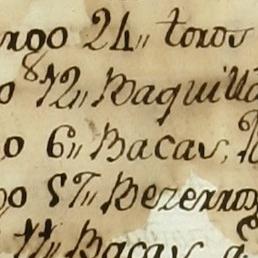 ngo 24,, toros
o 12,, Baquilla
o 6,, Bacas,
go 57,, Bezerros
11,, Bacas, q